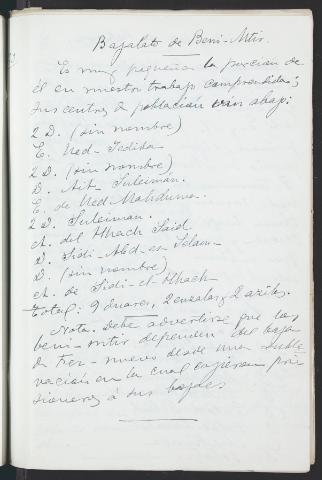 Bajalato de Beni-Mtir.
Es muy pequeña la porcion de
él en nuestro trabajo comprendida;
sus centros de poblacion van abajo:
2 D. (sin nombre)
E. Ued-Jedida
2 D. (sin nombre)
D. Ait-Suleiman.
E. de Ued-Mahduma.
2 D. Suleiman.
A. del Ilhach Said
D. Sidi-Abd-es-Selam.
D. (sin nombre)
A. de Sidi-el-Ilhach
Total: 9 duares, 2 enzalas y 2 azibs.
Nota. Debe advertirse que los
beni-mtir dependen del baja
de Fez-nuevo desde una suble
vación en la cual cojieron pri
sioneros á sus bajaes